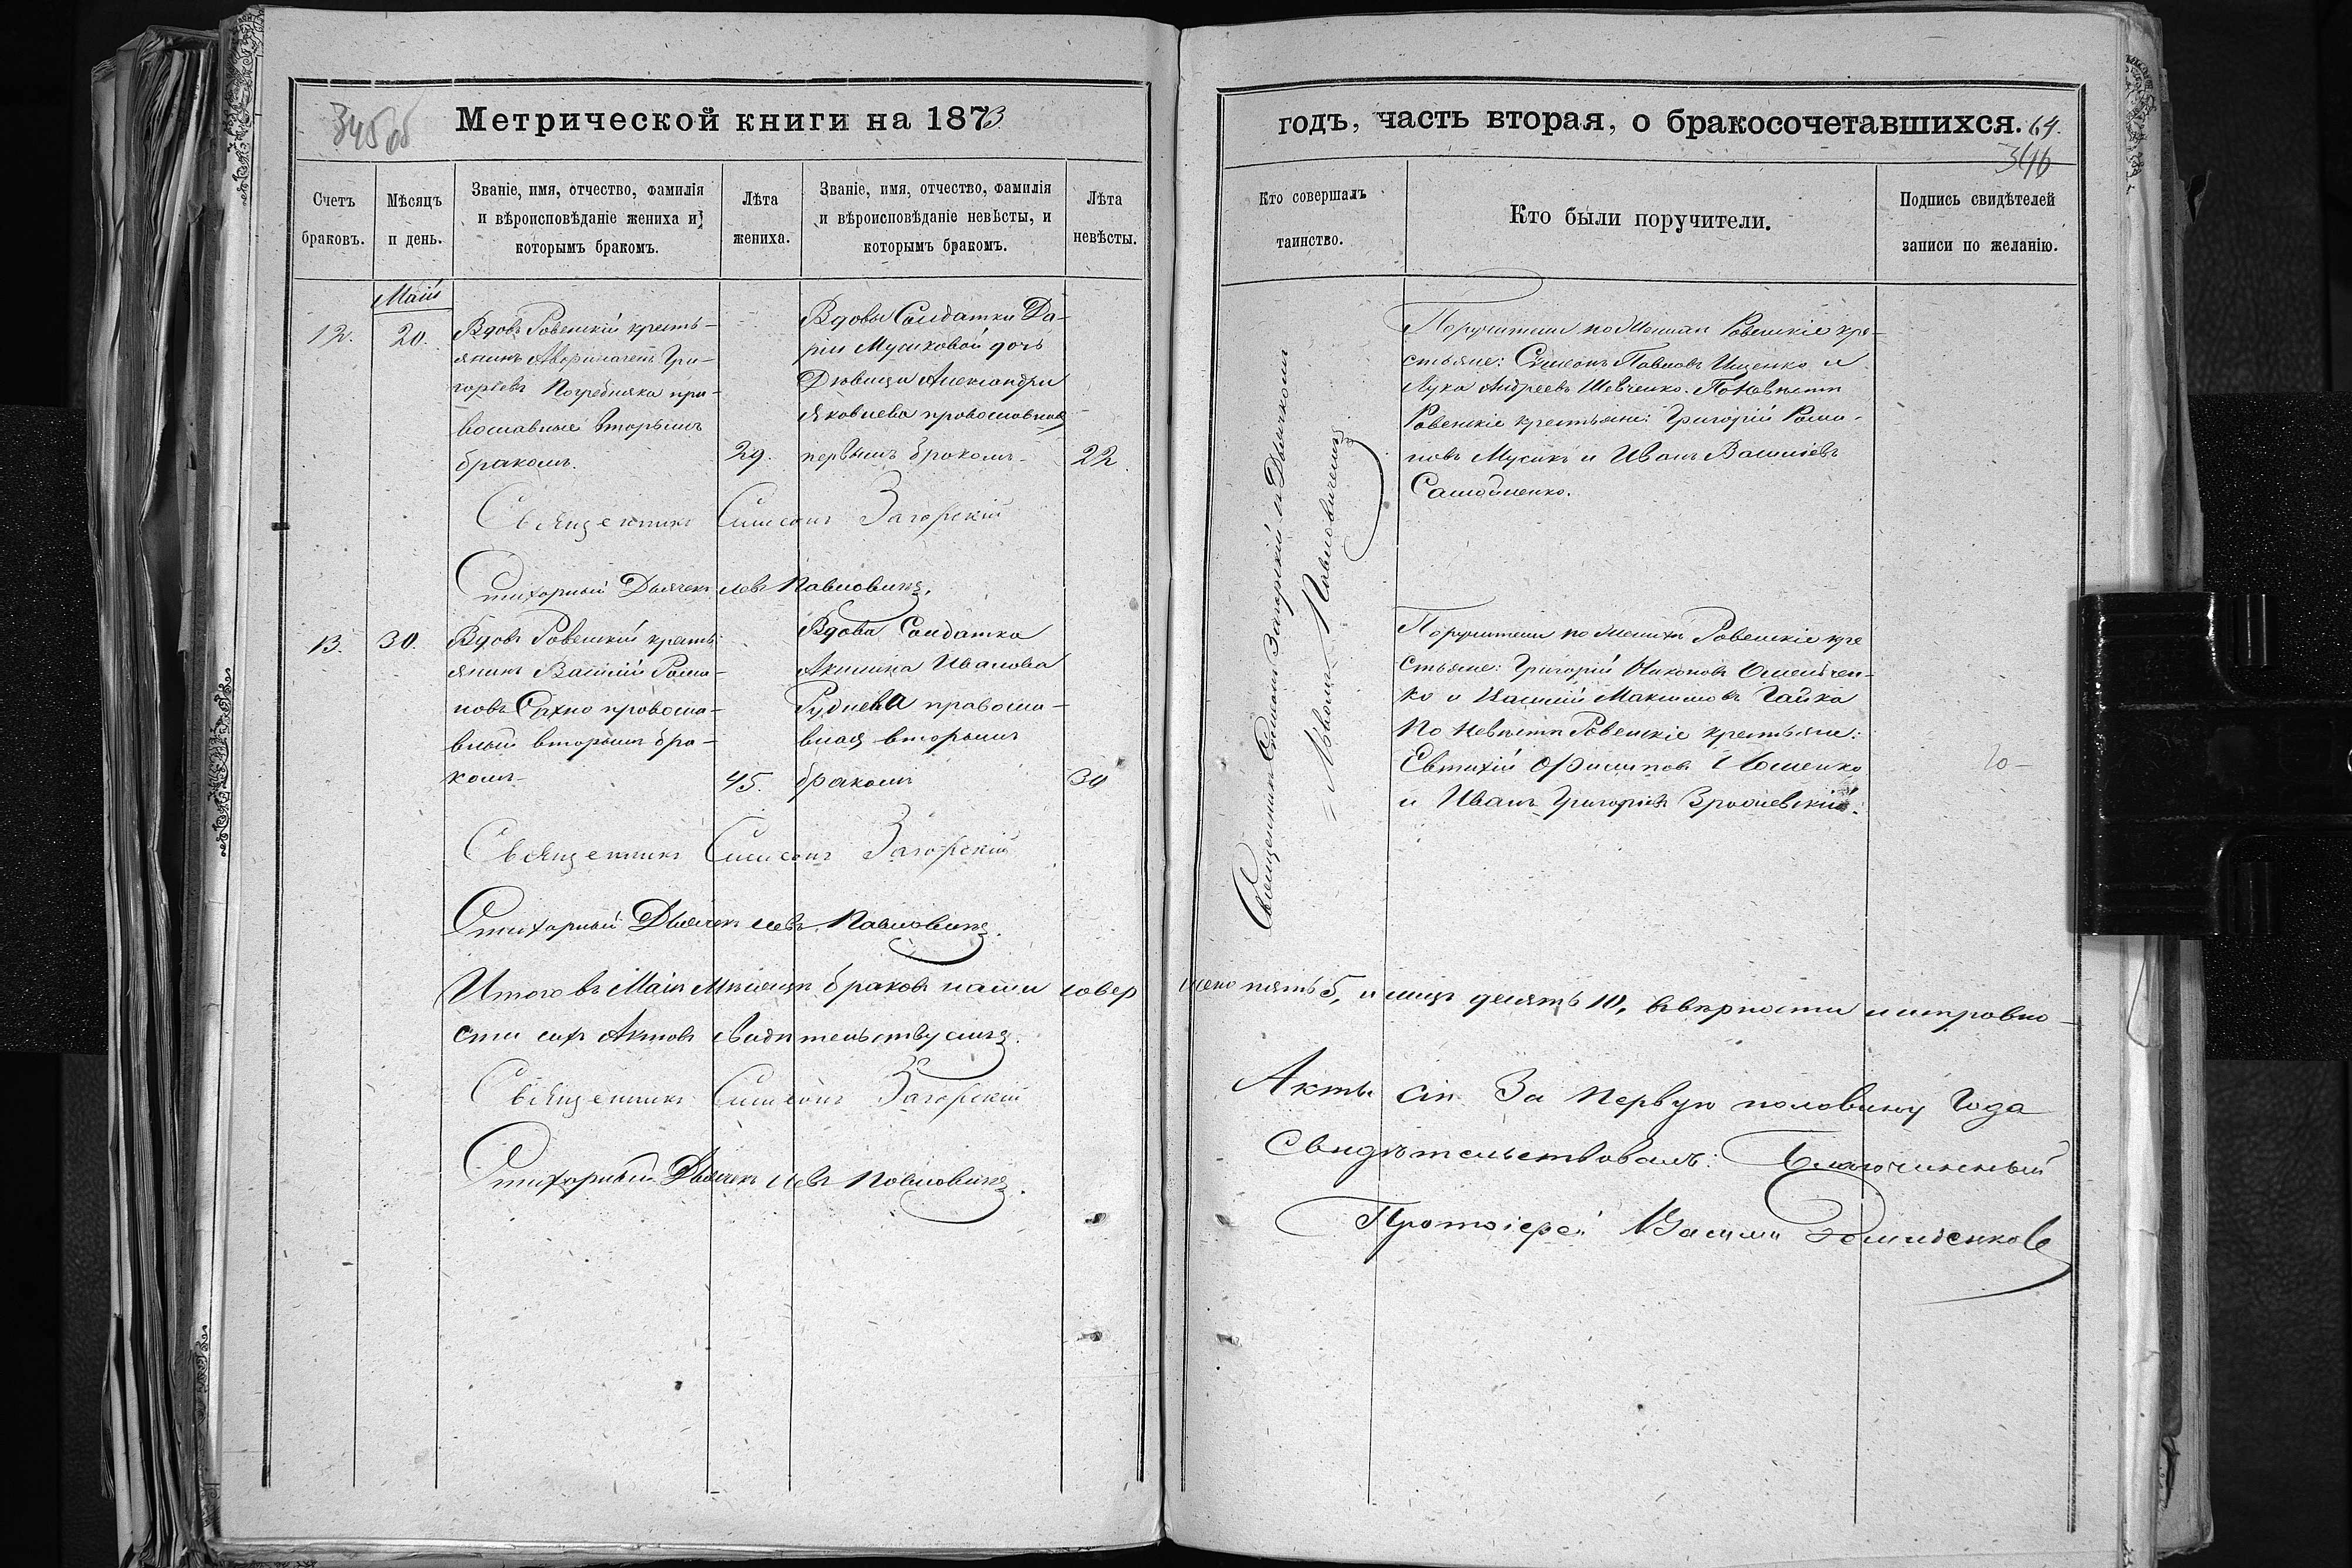 345 об
Метрической книги на 1873
Счетъ браковъ.
Мѣсяцъ и день.
Званіе, имя, отчество, фамилія
и вѣроисповѣданіе жениха и
которымъ бракомъ.
Лѣта жениха.
Званіе, имя, отчество, фамилія
и вѣроисповѣданіе невѣсты, и
которымъ бракомъ.
Лѣта невѣсты.
Маій
12.
20.
Вдовъ Ровенскій кресть-
янинъ Григорьевъ Погребняка пра-
вославные вторымъ
бракомъ.
29.
Вдовы Солдатки Да-
ріи Мусиковой дочь
Дѣвица Александра
Яковлева православная
первымъ бракомъ
22.
Священникъ Симеонъ Загорскій
Стихарный Дьячекъ Левъ Павловичъ.
13.
30.
Вдовъ Ровенскій кресть
янинъ Василій Рома-
новъ Сахно правосла-
вный вторымъ бра-
комъ
45.
Вдова Солдатка
Акилина Иванова
Руднева правосла-
вная вторымъ
бракомъ
30
Священникъ Симеонъ Загорскій
Стихарный Дьячекъ Левъ Павловичъ.
Итого въ Маіѣ мѣсяцѣ браковъ нами совер
сти сихъ Актовъ свидѣтельствуемъ.
Священникъ Симеонъ Загорскій
Стихарный Дьячекъ Левъ Павловичъ.
годъ, часть вторая, о бракосочетавшихся. 64.
346
Кто совершалъ
таинство.
Кто были поручители.
Подпись свидѣтелей
записи по желанію.
Священникъ Симеонъ Загорскій и Дьячкомъ
Львомъ Павловичемъ
Поручители Ровенскіе кре-
стьяне: Симеонъ Павловъ Ищенко и
Лука Андреевъ Шевченко. По Невѣстѣ
Ровенскіе крестьяне: Григорій Рома-
новъ Мусикъ и Иванъ Васильевъ
Самойленко.
Поручители по Женихѣ Ровенскіе кре
стьяне: Григорій Никоновъ Омельчен-
ко и Василій Максимовъ Гайка
По Невѣстѣ Ровенскіе крестьяне:
Евтихій Филиповъ
и Иванъ Григорьевъ
шено пять 5, и лицъ десять 10, въ вѣрности и справно-
Акты сіи За первую половину года
Свидѣтельствовалъ: Благочинный
Протоіерей Василій